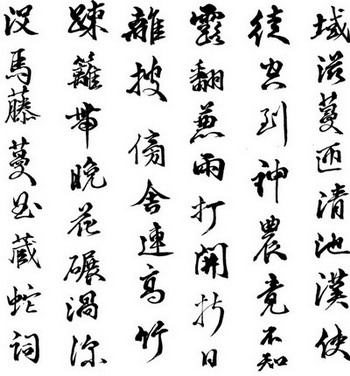 域滋蔓迊清池漢使
徒空到神農竟不知
露翻兼雨打開折日
離披傍舍連高竹
踈籬帶晚花碾渦深
没馬藤蔓曲藏蛇詞